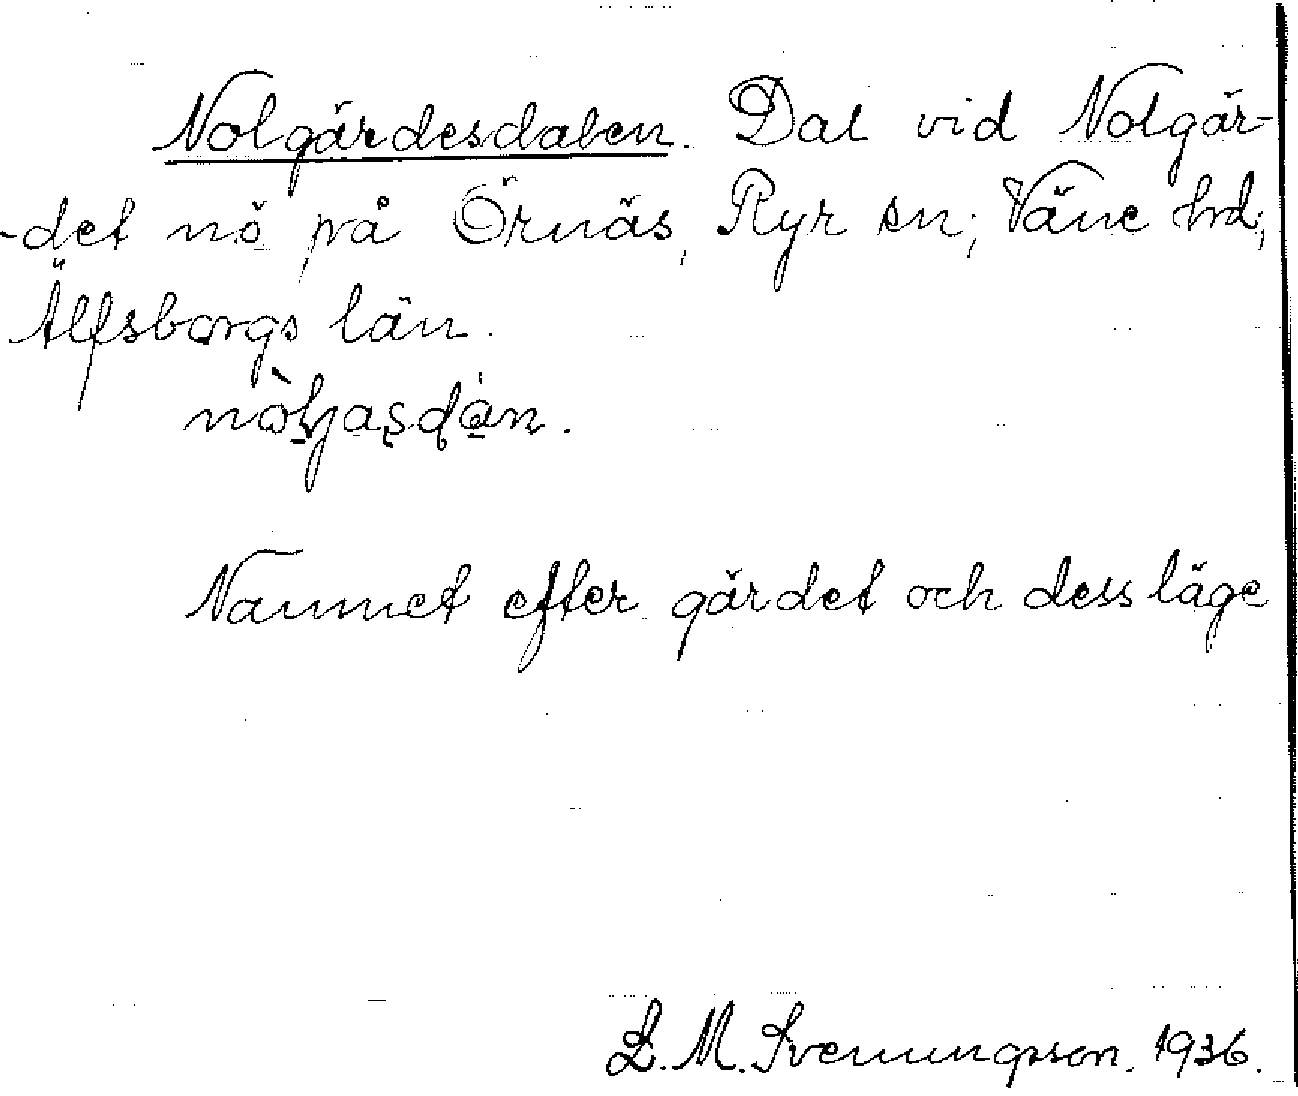 Nolgärdesdalen. Dal vid Nolgär-
-det nö på Örnäs, Ryr sn; Väne hd;
Älfsborgs län.
Namnet efter gärdet och dess läge
L. M. Svenungsson. 1936.